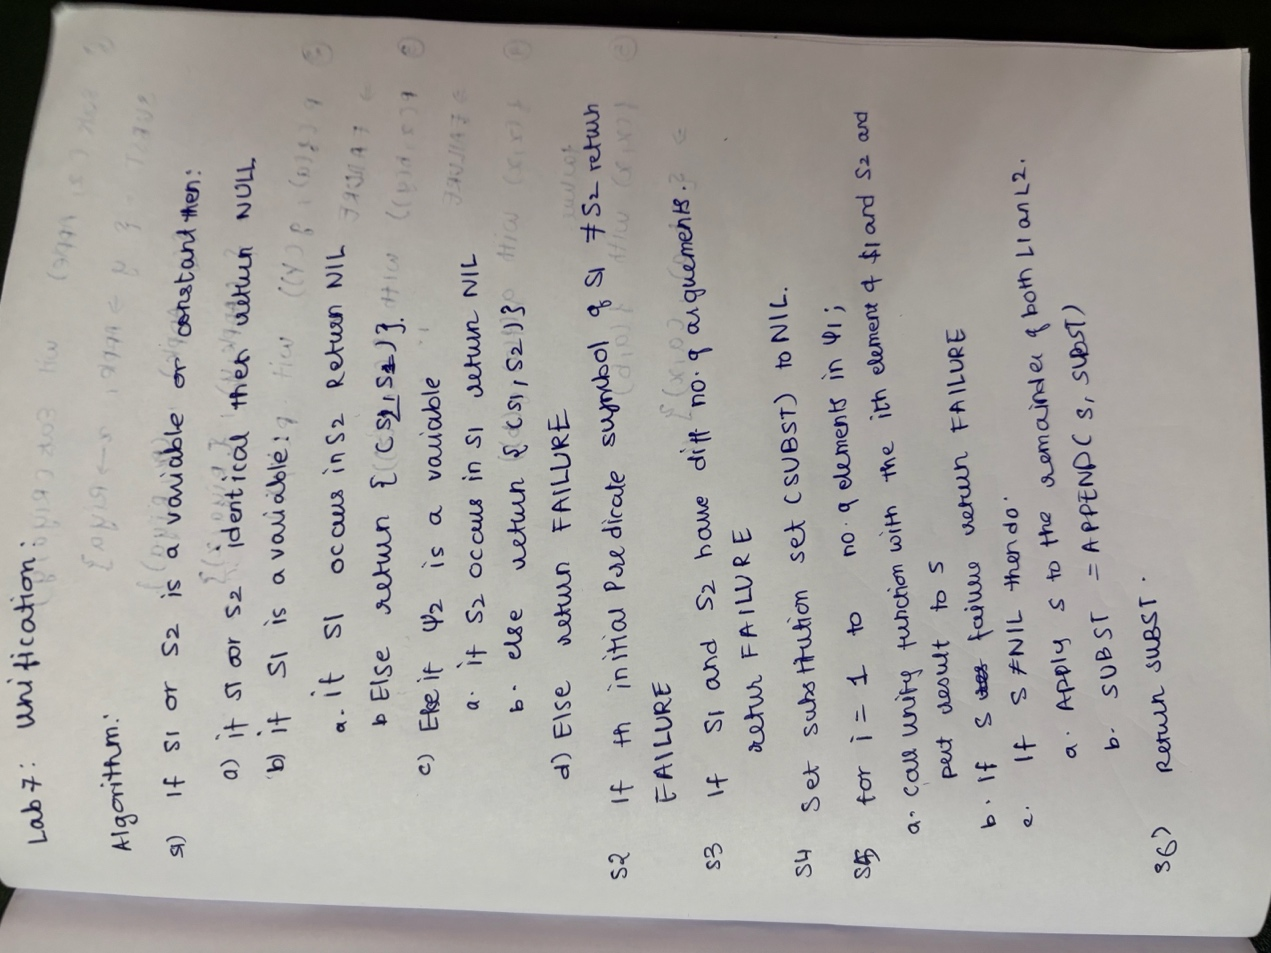 Lab 7: Unification:
Algorithm:
S1) If S1 or S2 is a variable or constant then:
a) if S1 or S2 identical then return NULL
b) if S1 is a variable:
a. if S1 occurs in S2 Return NIL
b Else return {(S2, S2)}.
c) Else if Ψ2 is a variable
a. if S2 occurs in S1 return NIL
b. else return {(S1, S2)}
d) Else return FAILURE
S2 If th initial Predicate symbol of S1 ≠ S2 return
FAILURE
S3 If S1 and S2 have diff no. of arguements.
retur FAILURE
S4 Set substitution set (SUBST) to NIL.
S5 for i = 1 to no. of elements in Ψ1;
a. Call unify function with the ith element of S1 and S2 and
put result to S
b. If S failure return FAILURE
c. If S ≠ NIL then do
a. Apply S to the remainder of both L1 an L2.
b. SUBST = APPEND(S, SUBST)
S6) Return SUBST.